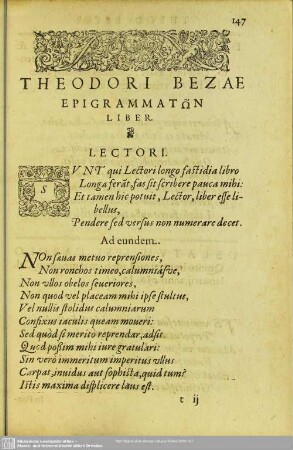 147
THEODORI BEZAE
EPIGRAMMATΩ̃N
LIBER.
LECTORI.
SVNT qui Lectori longo fastidia libro
Longa ferãt, fas sit scribere pauca mihi:
Et tamen hic potuit, Lector, liber esse li-
bellus,
Pendere sed versus non numerare decet.
Ad eundem.
NOn sæuas metuo reprensiones,
Non ronchos timeo, calumniásve,
Non vllos obelos seueriores,
Non quod vel placeam mihi ipse stultus,
Vel nullis stolidus calumniarum
Confixus iaculis queam moueri:
Sed quòd si meritò reprendar, adsit
Quod possim mihi iure gratulari:
Sin verò immeritum imperitus vllus
Carpat, inuidus aut sophista, quid tum?
Istis maxima displicere laus est.
t ij